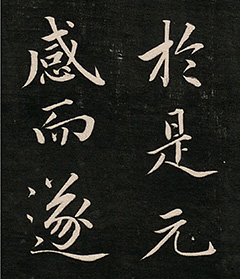 於是元
感而遂